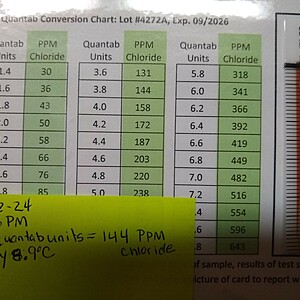 Quantab Conversion Chart: Lot #4272A, Exp. 09/2026
Quantab Units PPM Chloride Quantab Units PPM Chloride Quantab Units PPM Chloride
1.4 30 3.6 131 5.8 318
1.6 36 3.8 144 6.0 341
1.8 43 4.0 158 6.2 366
2.0 50 4.2 172 6.4 392
58 4.4 187 6.6 419
66 4.6 203 6.8 449
76 4.8 220 7.0 482
85 5.0 238 7.2 516
554
596
643
-24
PM
Quantab units = 144 PPM
Chloride
8.9°C
of sample, results of test s
picture of card to report w